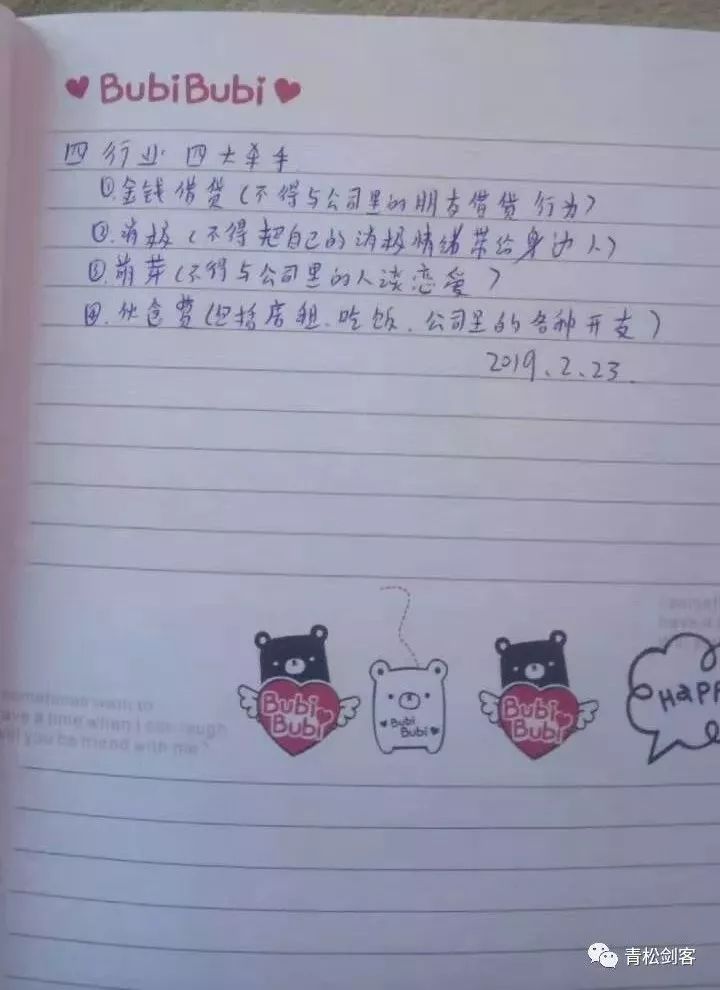 BubiBubi
四行业四大杀手
①.金钱借贷(不得与公司里的朋友借贷行为)
②.消极(不得把自己的消极情绪带给身边人)
③.萌芽(不得与公司里的人谈恋爱)
④.伙食费(包括店租、吃饭、公司里的各种开支)
2019.2.23.
Bubi Bubi
Bubi Bubi
Bubi Bubi
HaPP
sometimes want to
ave a time when I can laugh
you be friend with me?
青松剑客